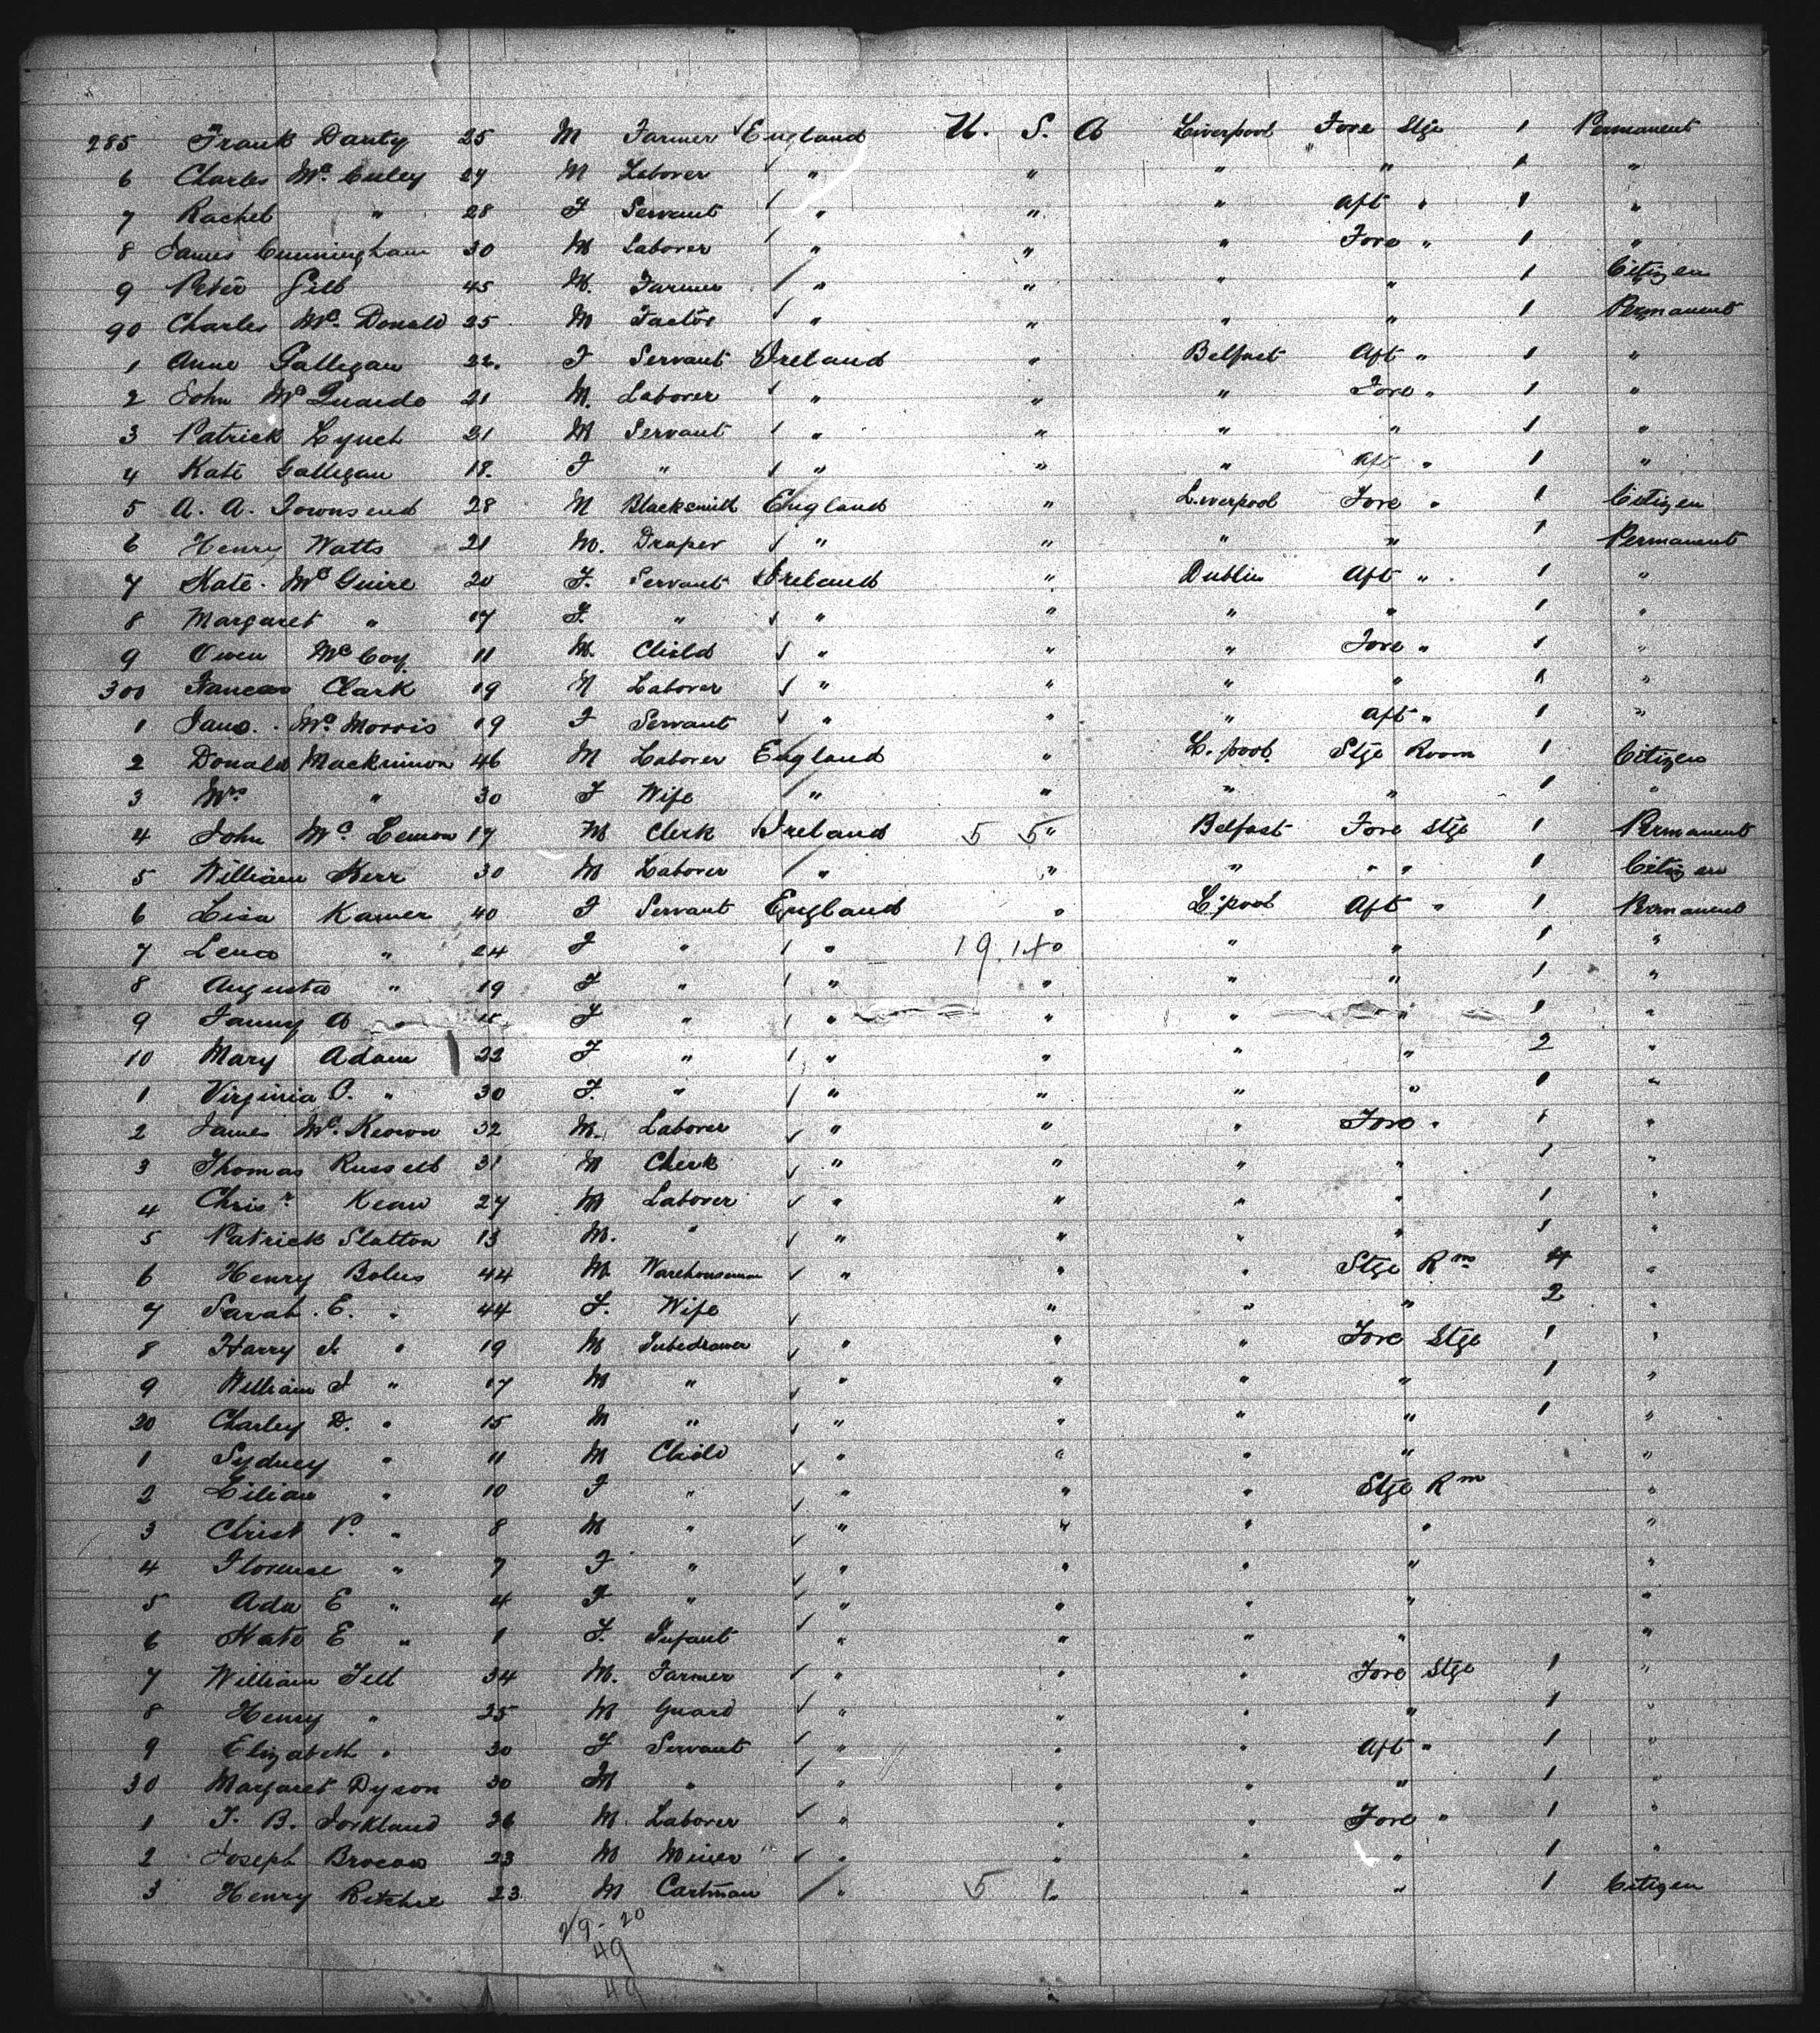 285 Frank Danty 25 M Farmer England U. S. A Liverpool Fore Stge 1 Permanent
6 Charles Mc Culey 27 M Laborer " " " " 1 "
7 Rachel " 28 F Servant " " " Aft " 1 "
8 James Cunningham 30 M Laborer " " " Fore " 1 "
9 Peter Gill 45 M. Farmer " " " " 1 Citizen
90 Charles Mc Donald 25 M Factor " " " " 1 Permanent
1 Anne Gallegan 22. F Servant Ireland " Belfast Aft " 1 "
2 John Mc Quaide 21 M. Laborer " " " Fore " 1 "
3 Patrick Lynch 21 M Servant " " " " 1 "
4 Kate Gallegan 18. F " " " " Aft " 1 "
5 A. A. Townsend 28 M Blacksmith England " Liverpool Fore " 1 Citizen
6 Henry Watts 21 M. Draper " " " " 1 Permanent
7 Kate. Mc Guire 20 F. Servant Ireland " Dublin Aft " 1 "
8 Margaret " 17 F. " " " " " 1 "
9 Owen Mc Coy 11 M. Child " " " Fore " 1 "
300 Clark 19 M Laborer " " " " 1 "
1 Jane. Mc Morris 19 F Servant " " " Aft " 1 "
2 Donald Mackinnon 46 M Laborer England " L. pool Stge Room 1 Citizen
3 Mrs " 30 F Wife " " " " 1 "
4 John Mc Lemon 17 M Clerk Ireland 5 5 " Belfast Fore Stge 1 Permanent
5 William Kerr 30 M Laborer " " " " " 1 Citizen
6 Lisa Kamer 40 F Servant England " L'pool Aft " 1 Permanent
7 Lena " 24 F " " 19.14 " " " 1 "
8 Augusta " 19 F " " " " " 1 "
9 Fanny A " 15 F " " " " " 1 "
10 Mary Adam 22 F " " " " " 2 "
1 Virginia C. " 30 F. " " " " " 1 "
2 James Mc. Keown 32 M. Laborer " " " Fore " 1 "
3 Thomas Russell 31 M Clerk " " " " 1 "
4 Chrisr Kean 27 M Laborer " " " " 1 "
5 Patrick Slatton 13 M. " " " " " 1 "
6 Henry Boles 44 M. Warehouseman " " " Stge Rm 4 "
7 Sarah. E. " 44 F. Wife " " " 2 "
8 Harry J. " 19 M Tubedrawer " " " Fore Stge 1 "
9 William J " 17 M " " " " " 1 "
20 Charley D. " 15 M " " " " " 1 "
1 Sydney " 11 M Child " " " " "
2 Lilian " 10 F " " " " Stge Rm "
3 Christ P. " 8 M " " " " " "
4 Florence " 7 F " " " " " "
5 Ada E " 4 F " " " " " "
6 Kate E " 1 F. Infant " " " " "
7 William Tell 34 M. Farmer " " " Fore Stge 1 "
8 Henry " 25 M Guard " " " " 1 "
9 Elizabeth " 30 F Servant " " " Aft " 1 "
30 Margaret Dyson 30 M " " " " " 1 "
1 T. B. Forkland 26 M. Laborer " " " Fore " 1 "
2 Joseph 23 M Miner " " " " 1 "
3 Henry Ritchie 23 M Cartman " 5 1 " " " 1 Citizen
29-20
49
49